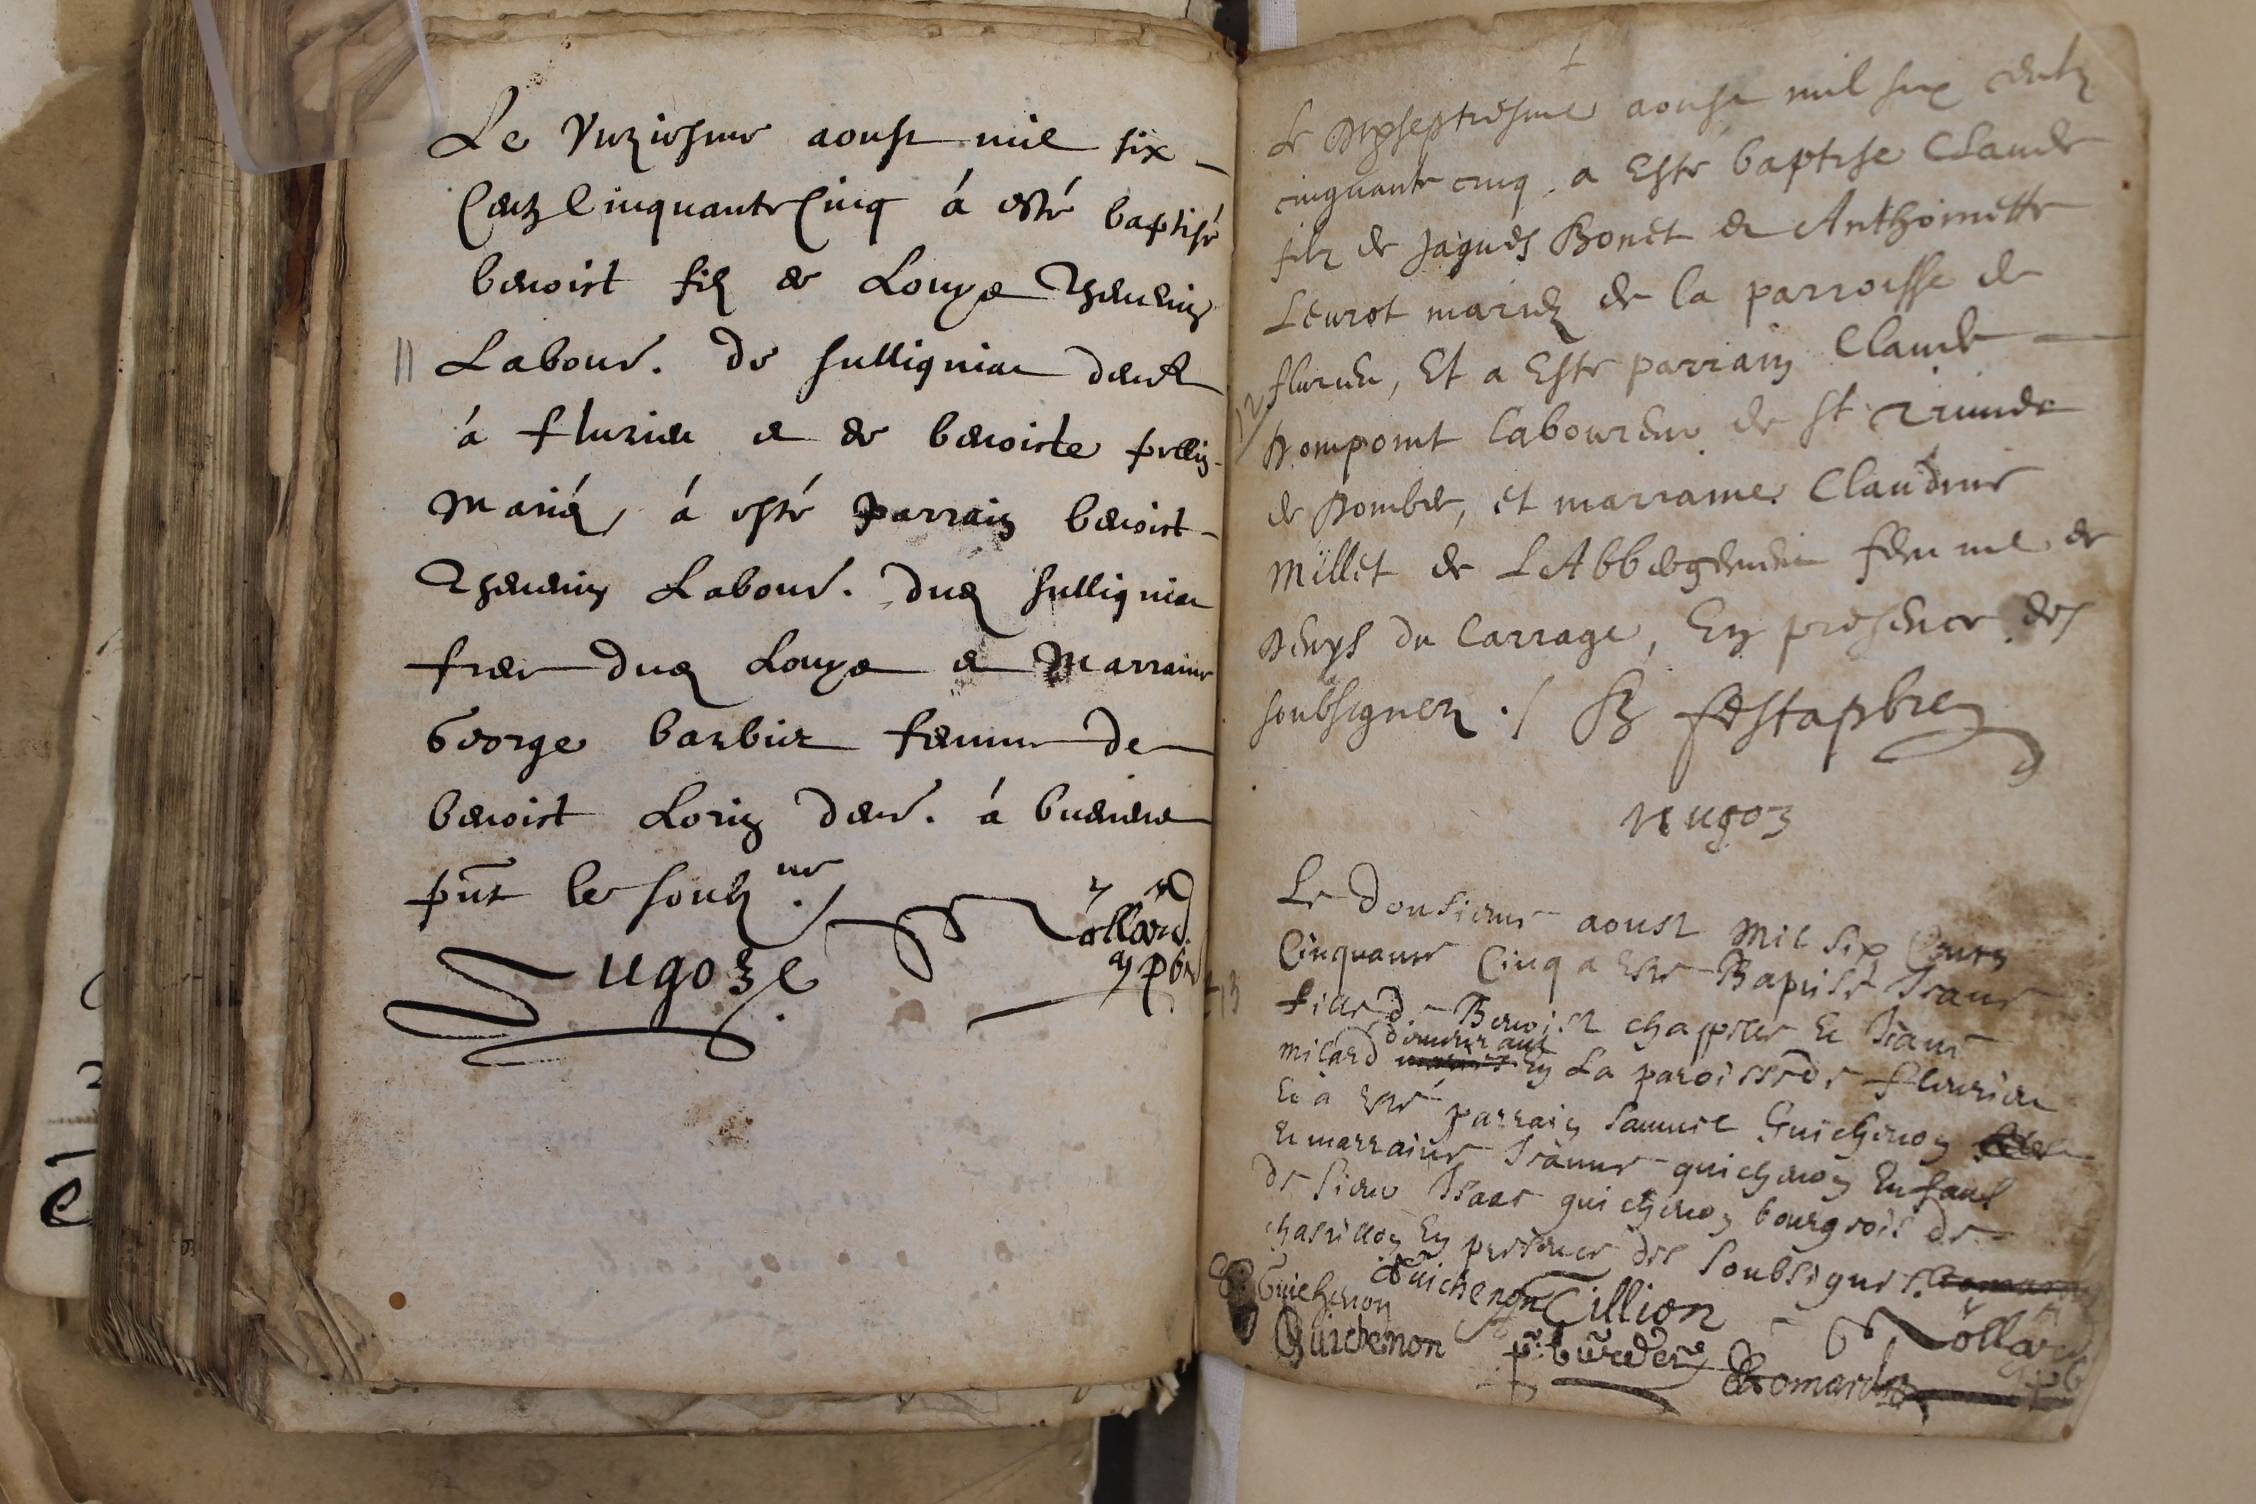 Le Vnziesme aoust mil six
Centz Cinquante Cinq á esté baptisé
benoist filz de Louys Thevenin
11 Labour. de sulligniat deurt
á flurieu et de benoiste
Mariés, á esté parrain benoist
Thevenin Labour. dud sulligniat
frere dud Louys et Marraine
George barbier femme de
benoist Lorin demr. á bueneue
pnt le soubz.né
Lugoz Collard
pbr
Le dixseptiesme aoust mil six centz
cinquante cinq a Esté baptise Claude
filz de Jaques Bonet et Anthoinette
Leurot mariez de la parroisse de
flurieu, Et a Esté parrain Claude
12 Dompoint laboureur de st Triuier
de Dombes, et marraine Claudine
Millet de L'Abbergement femme de
Denys du Carrage, En presence des
soubsignez ./ festapbre
Nugoz
Le Dousieme aoust Mil Six Cents
Cinquante Cinq a esté Baptisé Jeane
13 fille de Benoist chappuis Et Jeane
demeurant
milard En La paroisse de fleurieu
Et á esté parrain Samuel Guichenon
Et marraine Jeanne guichenon Enfant
de Sieur Isaac guichenon bourgeois de
chastillon En presence des Soubsignes
Guichenon Guichenon Tillion
Guichenon p. burdere Romard Collard
pb